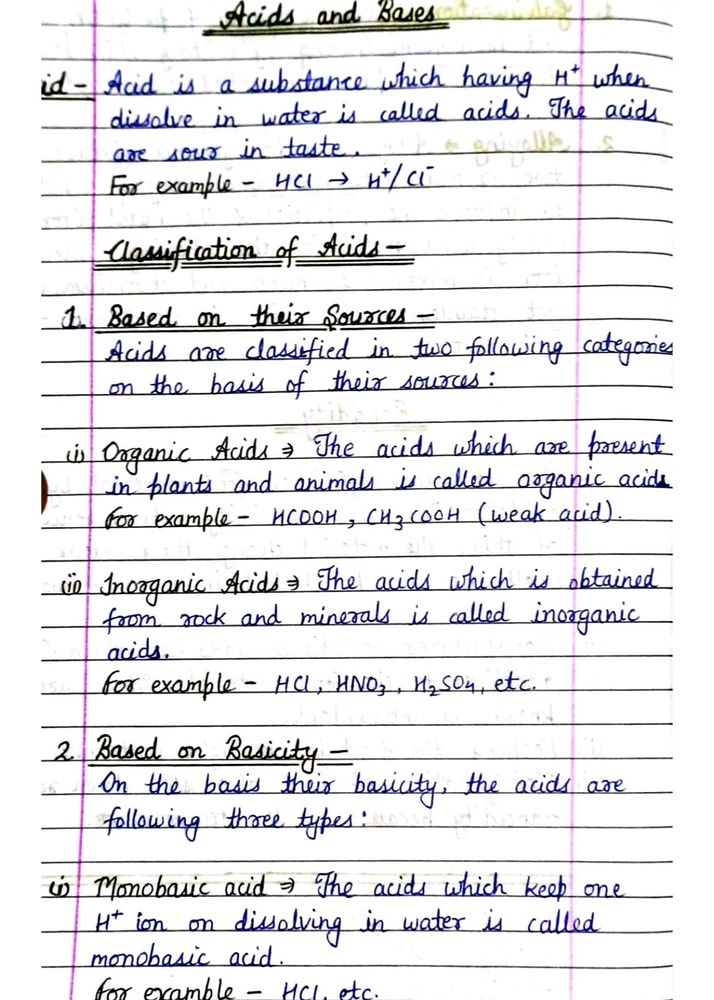 Acids and Bases
id - Acid is a substance which having H⁺ when
dissolve in water is called acids. The acids
are sour in taste.
For example - HCl → H⁺/Cl⁻
Classification of Acids -
1. Based on their Sources -
Acids are classified in two following categories
on the basis of their sources :
(i) Organic Acids ⇒ The acids which are present
in plants and animals is called organic acids
For example - HCOOH , CH₃COOH (weak acid).
(ii) Inorganic Acids ⇒ The acids which is obtained
from rock and minerals is called inorganic
acids.
For example - HCl, HNO₃, H₂SO₄, etc.
2. Based on Basicity -
On the basis their basicity, the acids are
following three types :
(i) Monobasic acid ⇒ The acids which keep one
H⁺ ion on dissolving in water is called
monobasic acid.
For example - HCl, etc.